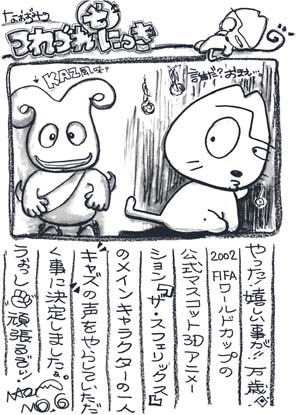 つれづれにっき
KAZ風味?
誰だ?おまえ…
やった!嬉しい事が!!万歳。
2002 FIFAワールドカップの
公式マスコット3Dアニメー
ション『ザ・スフェリックス』
のメインキャラクターの一人
キャズの声をやらしていただ
く事に決定しました。
うおっし 頑張るぞ!!
NO.6